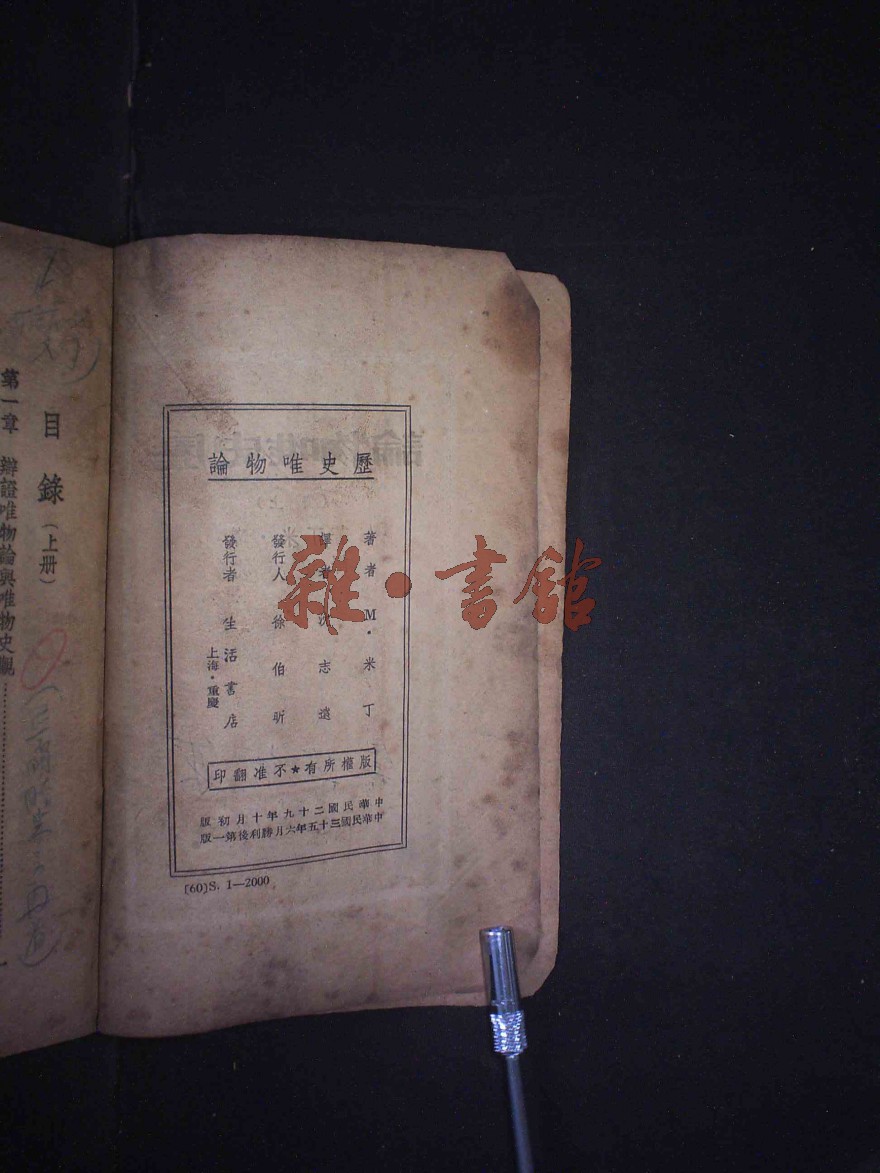 歷史唯物論
著者 M·米丁
譯者 沈志遠
發行人 徐伯昕
發行者 生活書店
上海·重慶
版權所有★不准翻印
中華民國二十九年十月初版
中華民國三十五年六月勝利後第一版
[60]S. 1—2000
目錄(上册)
第一章 辯證唯物論與唯物史觀
雜·書館